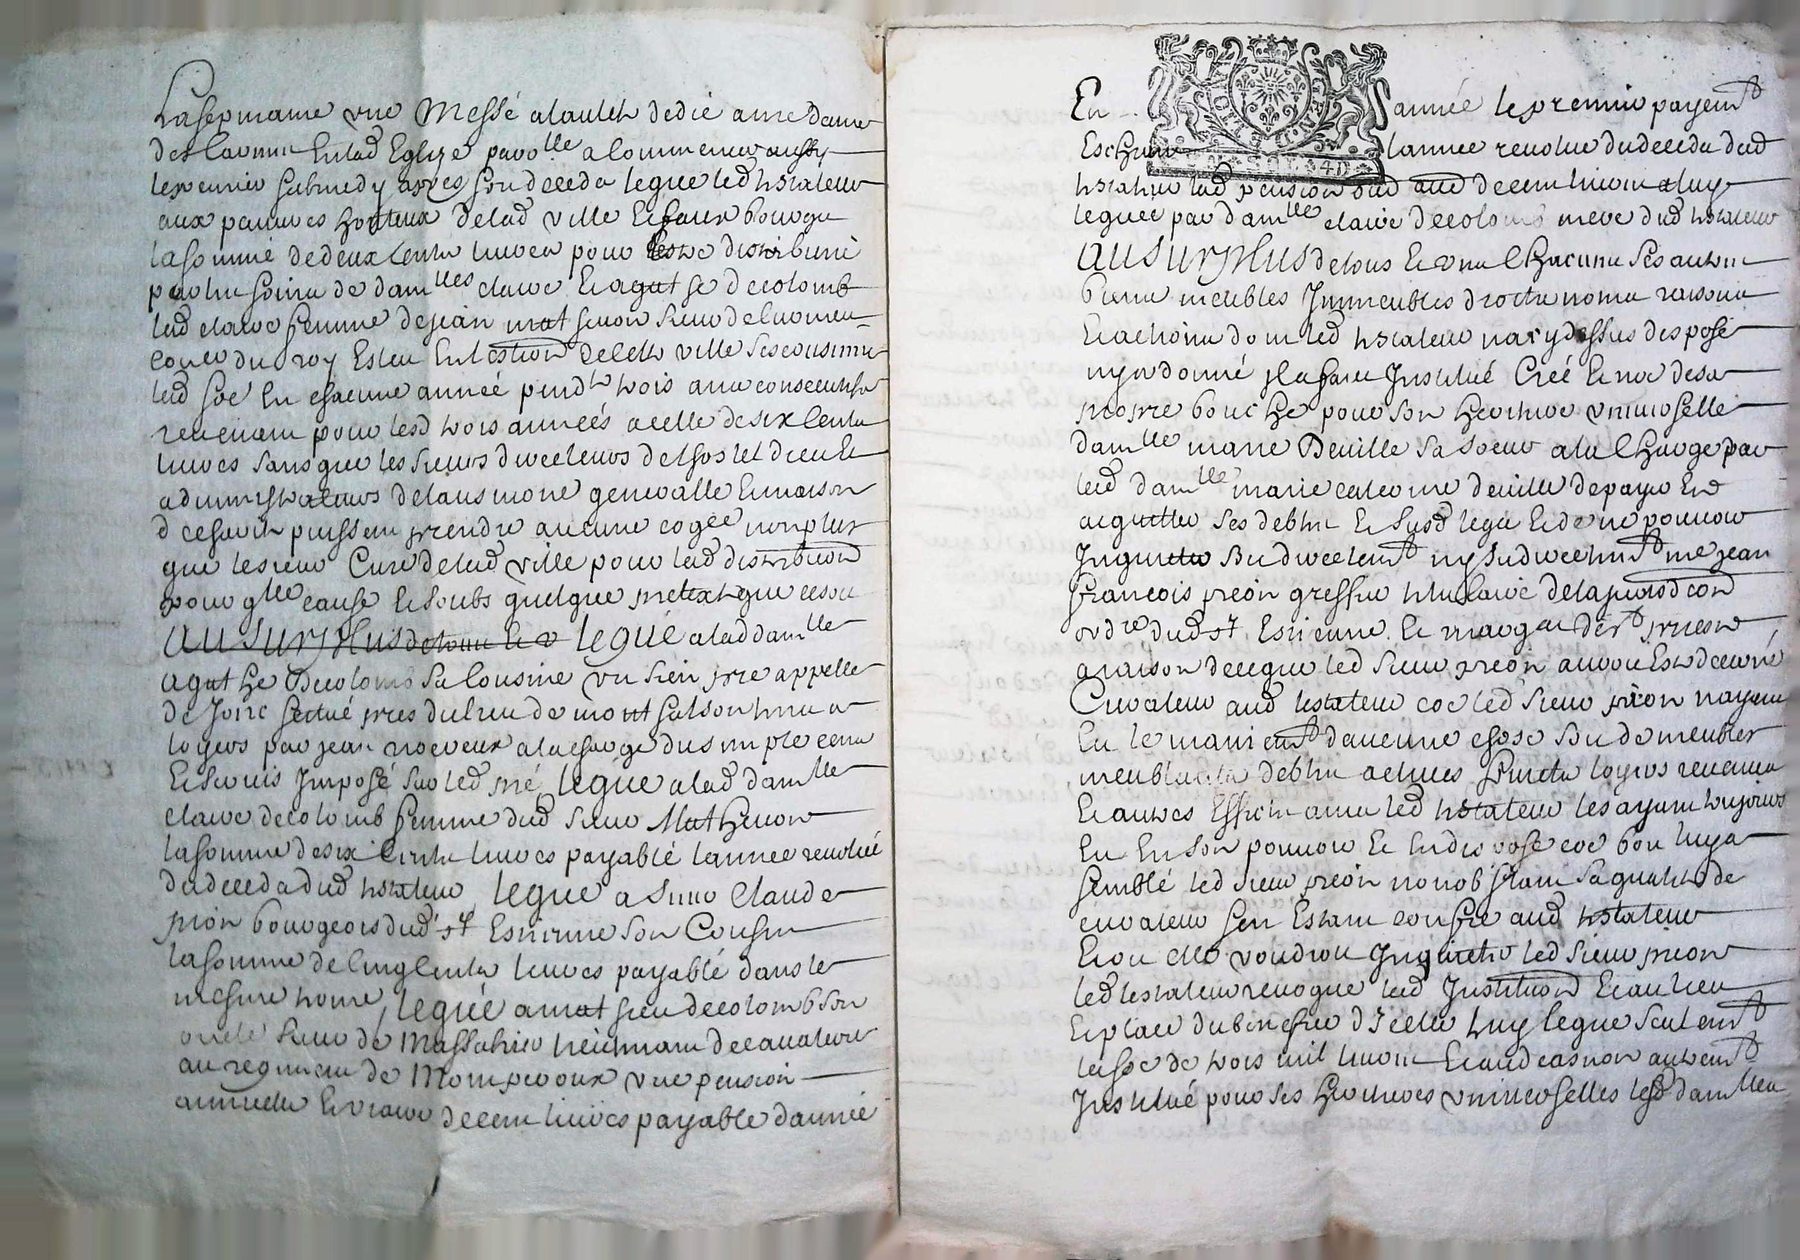 La sepmaine une Messe a lautel dedié a nre dame
des laurine En lad Eglize parolle a commencer aussy
le premier samedy apres son deceda legue led testateur
aux pauvres honteux de lad ville Et faux bourgs
la somme de deux Centz livres pour estre distribuée
par les soins de damlles claire Et agathe de colomb
lad claire femme de jean mathevon sieur de
coner du roy Esleu En lestion de cette ville ses cousines
lad soe En chacune année pendt trois annee consecutifve
revenant pour lesd trois années a celle de six Centz
livres sans que les sieurs directeurs de lhostel dieu Et
administrateurs de lausmone generalle Et maison
de charité puissent prendre aucune cogce non plus
que le sieur Curé de lad ville pour lad distribution
pour qlle cause Et soubs quelque pretexte que ce soit
Au surplus de tous Et v legue a lad damlle
agathe Decolomb sa Cousine un sien pre appellé
de Jone scitué pres du lieu de montsalson tenu a
loyers par jean noeveux a la charge du simple cens
Et servis Imposé sur led pré legue a lad damlle
claire decolomb femme dud sieur Mathevon
la somme de six Centz livres payable lannee revoluë
du deceda dud testateur legue a sieur Claude
prion bourgeois dud st Estienne son Cousin
la somme de Cinq Centz livres payable dans le
mesme terme, legue a mathieu decolomb son
oncle sieur de Massahieu lieutenant de cavalerie
au regiment de Monperoux une pension
annuelle Et viagere de cent livres payable dannée
En année le premier payemt
Escheant lannee revolue du deceda dud
testateur lad pension dud aud de cent livres a luy
leguée par damlle claire decolomb mere dud testateur
Au surplus de tous Et uns Chacuns ses autres
biens meubles Immeubles droits noms raisons
Et actions dont led testateur na cy dessus disposé
ny ordonné Il a faict Institué Créé Et nomé de sa
propre bouche pour son heritiere universelle
damlle marie Deville sa soeur a la Charge par
lad damlle marie caterine deville de payer Et
acquitter ses debtes Et susd legats Et de ne pouvoir
Inquietter Ny directemt ny Indirectemt me jean
francois prion greffier de la jurisdicon
ordre dud st Estienne Et margat der prieson
a raison de ce que led sieur prion auroit Esté decerné
Curateur aud testateur car led sieur prion nayant
Eu le maniemt daucune chose soit de meubles
meublants debtes actives fruits loyers revenus
Et autres Effects ains led testateur les ayant toujours
Eu En son pouvoir Et En disposé car bon luy a
semblé led sieur prion nonobstant sa qualité de
curateur sen Estant confié aud testateur
Et ou elle voudroit Inquieter led sieur prion
led testateur revoque lad Institution Et au lieu
Et place du benefice dIcelle luy legue seulemt
la soe de trois mil livres Et aud cas non autremt
Institué pour ses heritieres universelles lesd damlles